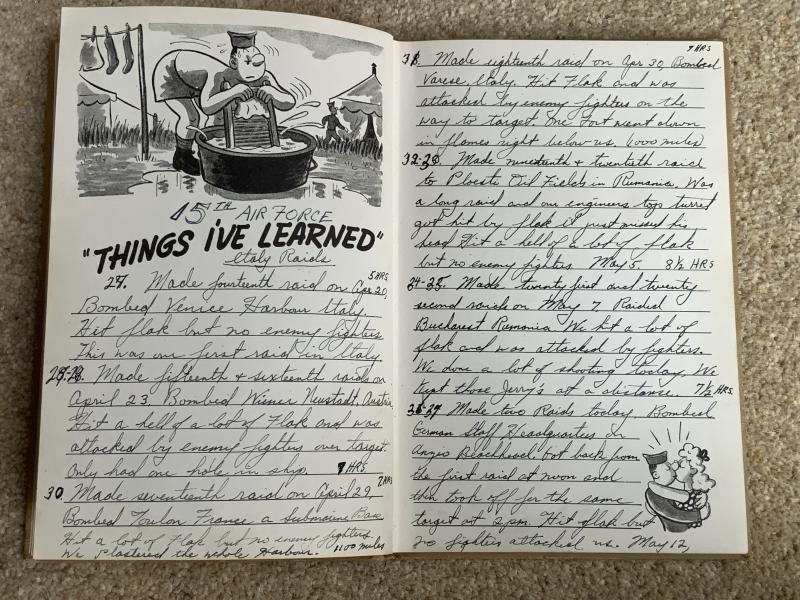 15TH AIR FORCE
"THINGS I'VE LEARNED"
Italy Raids
5 HRS
27. Made fourteenth raid on Apr 20,
Bombed Venice Harbour Italy.
Hit flak but no enemy fighters
This was our first raid in Italy
Made fifteenth & sixteenth raids on
April 23, Bombed Wiener Neustadt, Austria
Hit a hell of a lot of Flak and was
attacked by enemy fighters over target.
Only had one hole in ship. 7 HRS
7 HRS
30. Made seventeenth raid on April 29,
Bombed Toulon France a Submarine Base
Hit a lot of Flak but no enemy fighters.
We plastered the whole Harbour. 1100 miles
7 HRS
Made eighteenth raid on Apr 30, Bombed
Varese, Italy. Hit Flak and was
attacked by enemy fighters on the
way to target. One Fort went down
in flames right below us. 1000 miles
Made nineteenth & twentieth raid
to Ploesti Oil Fields in Rumania. Was
a long raid and our engineers top turret
got hit by flak it just missed his
head. Hit a hell of a lot of flak
but no enemy fighters. May 5. 8½ HRS
Made twenty first and twenty
second raids on May 7, Raided
Bucharest Rumania We hit a lot of
flak and was attacked by fighters.
We done a lot of shooting today. We
kept those Jerry's at a distance. 7½ HRS.
Made two Raids today. Bombed
German Staff Headquarters on
Anzio Beachhead, Got back from
the first raid at noon and
then took off for the same
target at 2 pm. Hit flak but
no fighters attacked us. May 12,